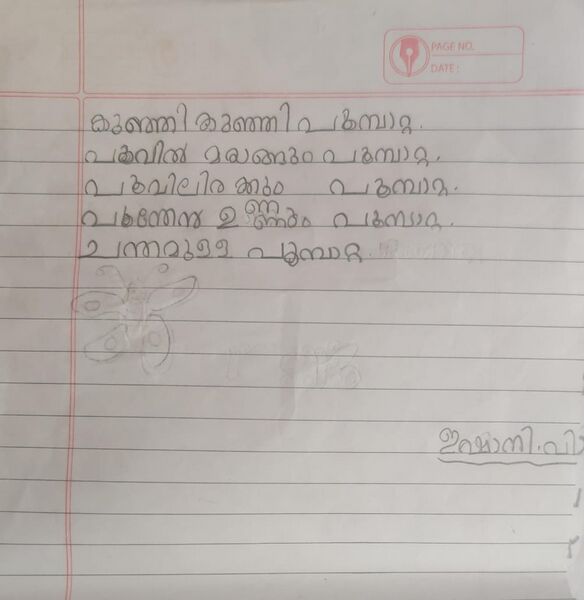 PAGE NO.
DATE :
കുഞ്ഞി കുഞ്ഞി പൂമ്പാറ്റ.
പൂവിൽ മയങ്ങും പൂമ്പാറ്റ.
പൂവിലിരിക്കും പൂമ്പാറ്റ.
പൂന്തേൻ ഉണ്ണും പൂമ്പാറ്റ.
ചന്തമുള്ള പൂമ്പാറ്റ.